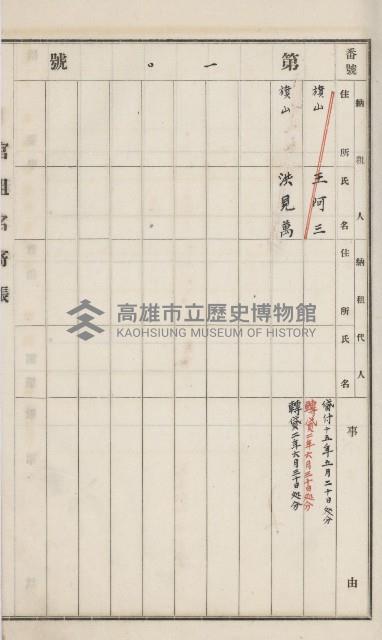 番號
第一〇號
納租人
住所氏名
納租代人
住所氏名
事由
旗山 王阿三
旗山 洪見萬
貸付十五年五月二十日処分
轉貸二年六月三十日処分
轉貸二年六月三十日処分
官租名寄帳
高雄市立歷史博物館
KAOHSIUNG MUSEUM OF HISTORY